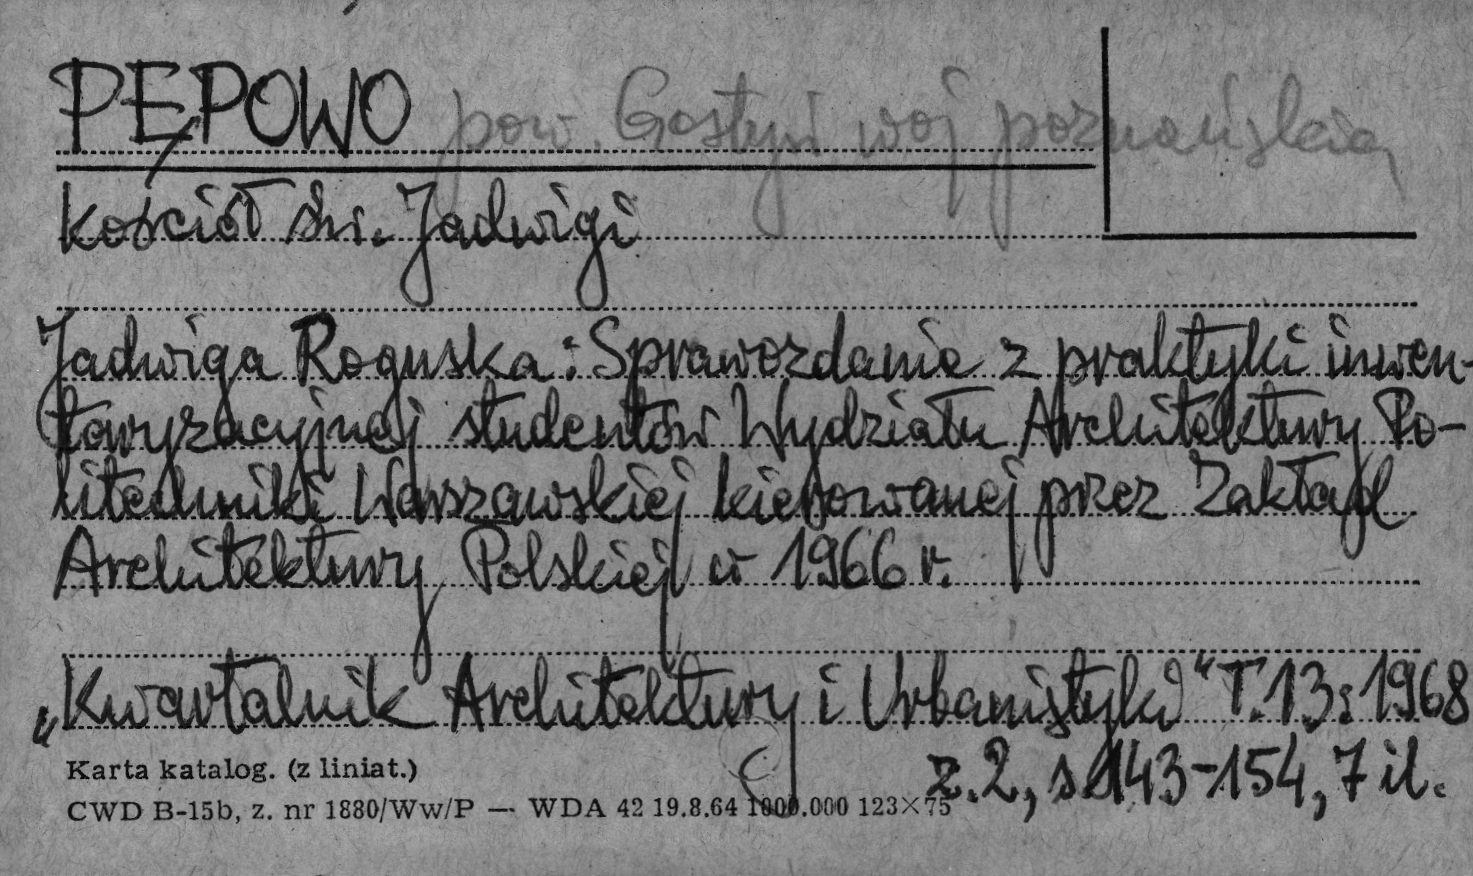 PĘPOWO pow. Gostyń woj poznańskie
Kościół św. Jadwigi
Jadwiga Roguska: Sprawozdanie z praktyki inwen-
taryzacyjnej studentów Wydziału Architektury Po-
litechniki Warszawskiej kierowanej przez Zakład
Architektury Polskiej w 1966 r.
„Kwartalnik Architektury i Urbanistyki" T.13: 1968
z.2, s 143-154, 7 il.
Karta katalog. (z liniat.)
CWD B-15b, z. nr 1880/Ww/P — WDA 42 19.8.64 1000.000 123×75